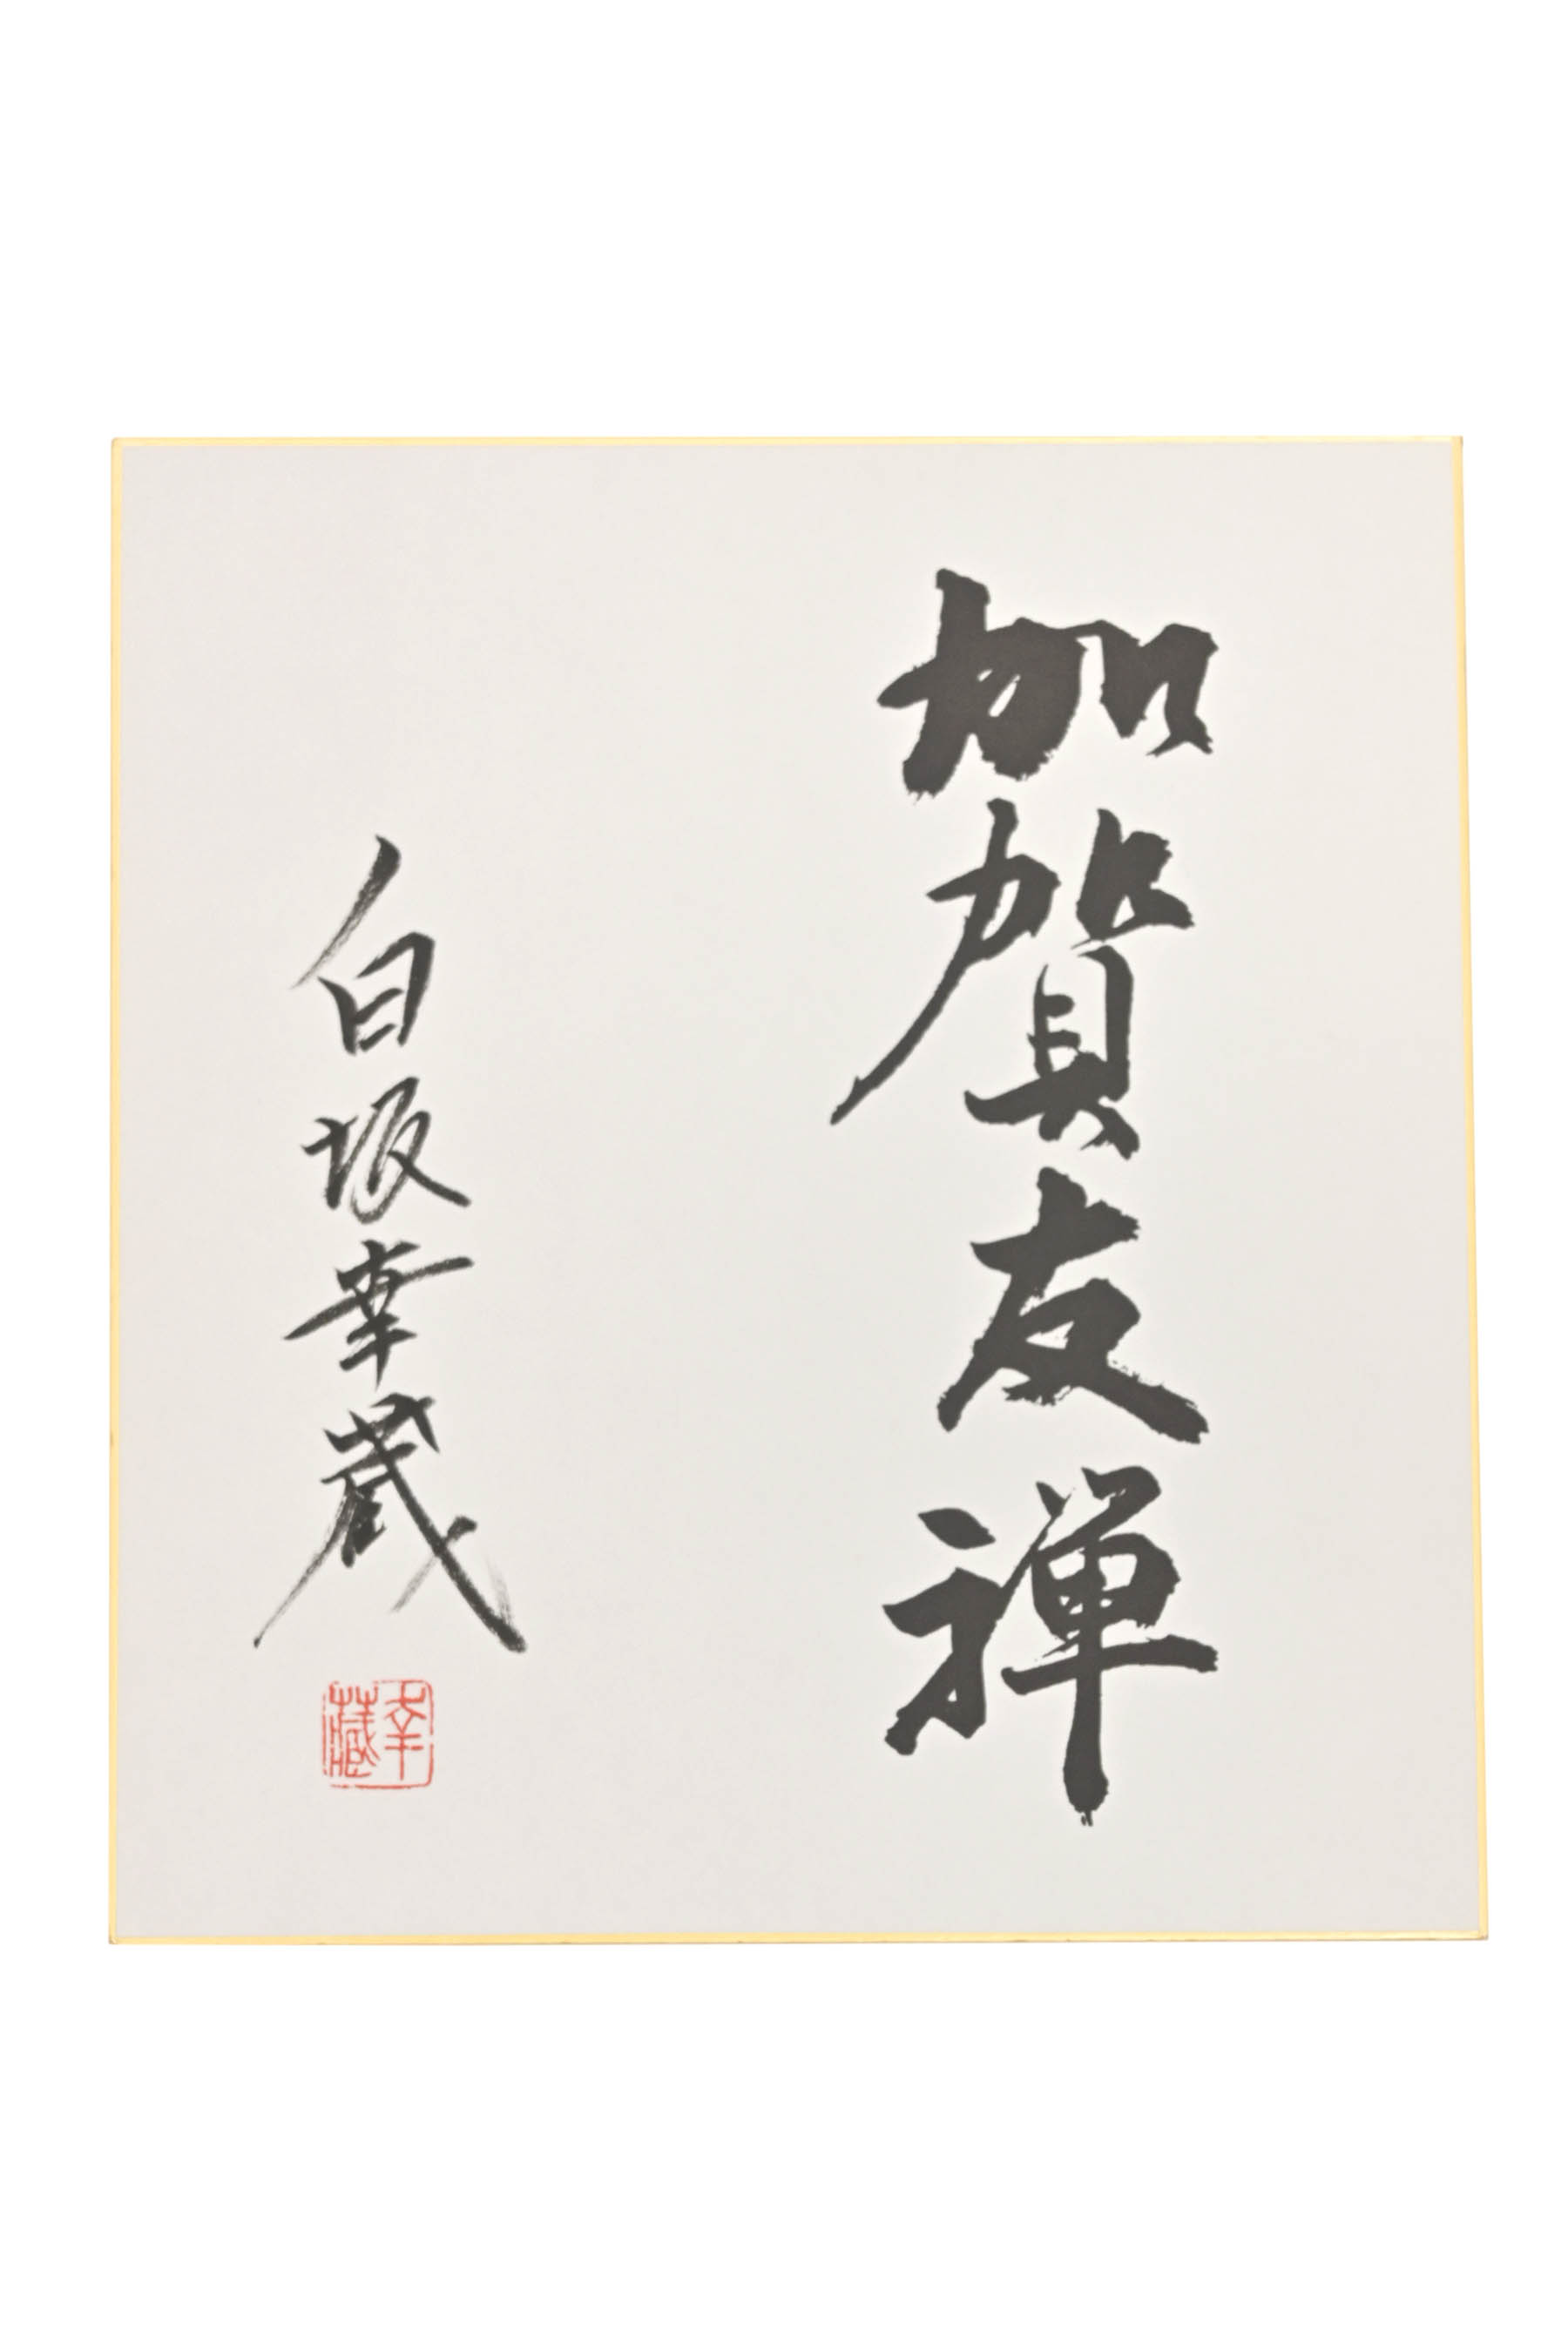 加賀友禅
白坂幸蔵
幸藏